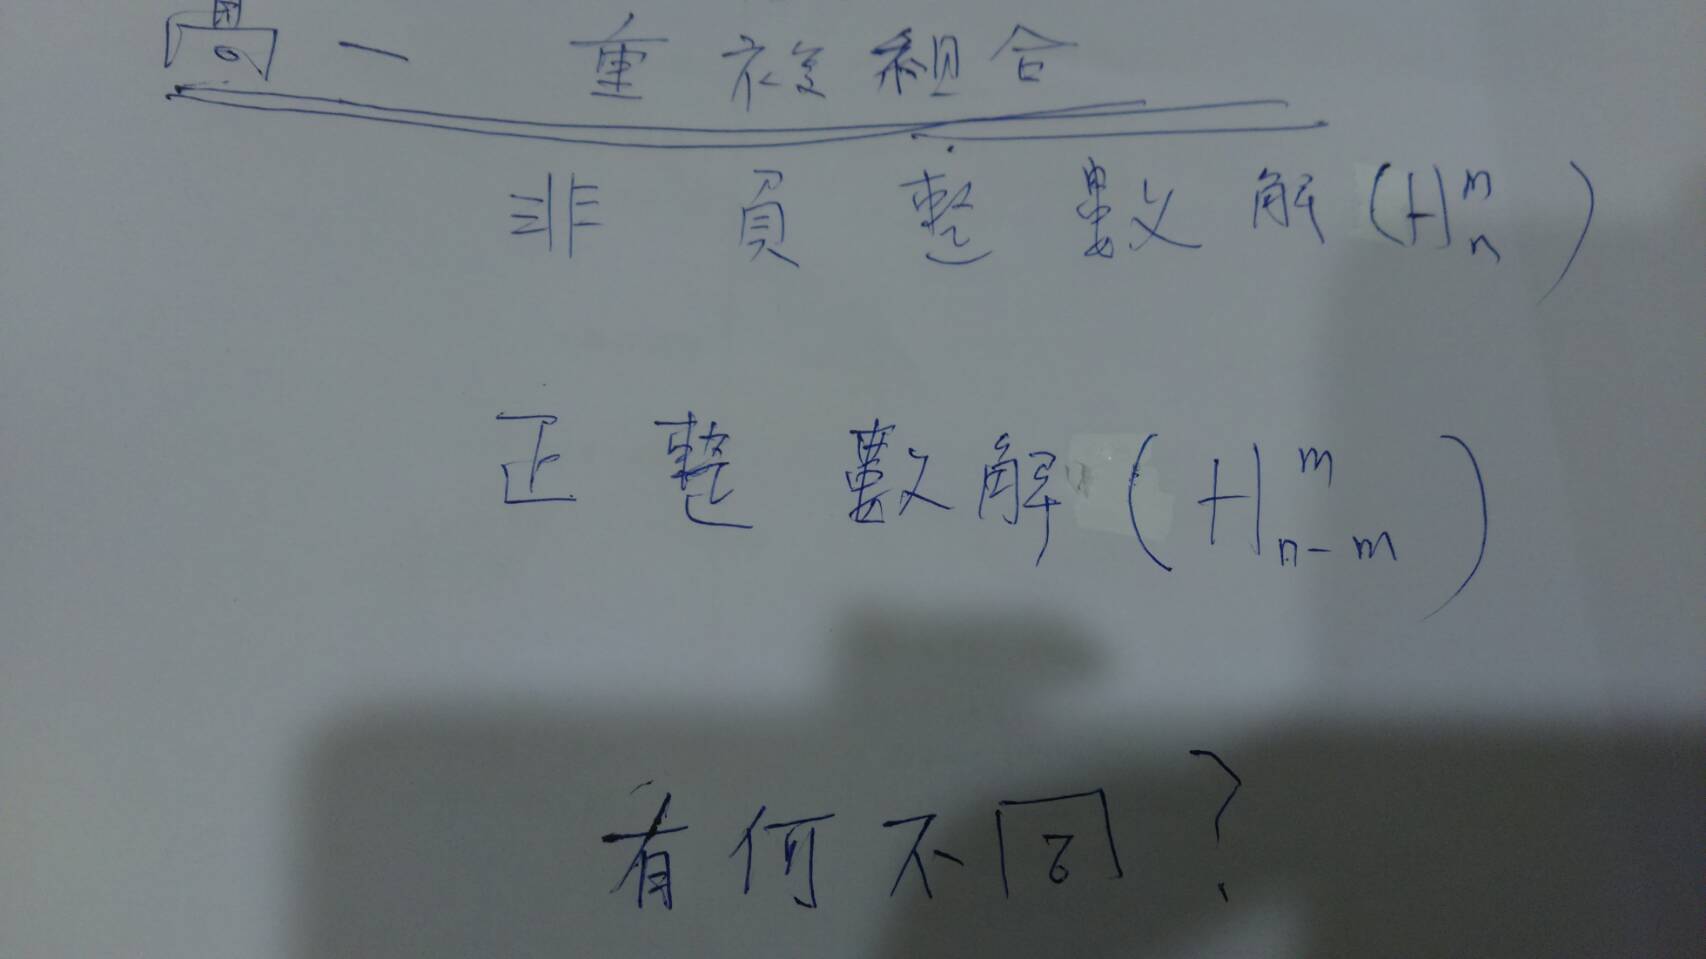 高一 重複組合
非負整數解(H^m_n)
正整數解(H^m_{n-m})
有何不同?